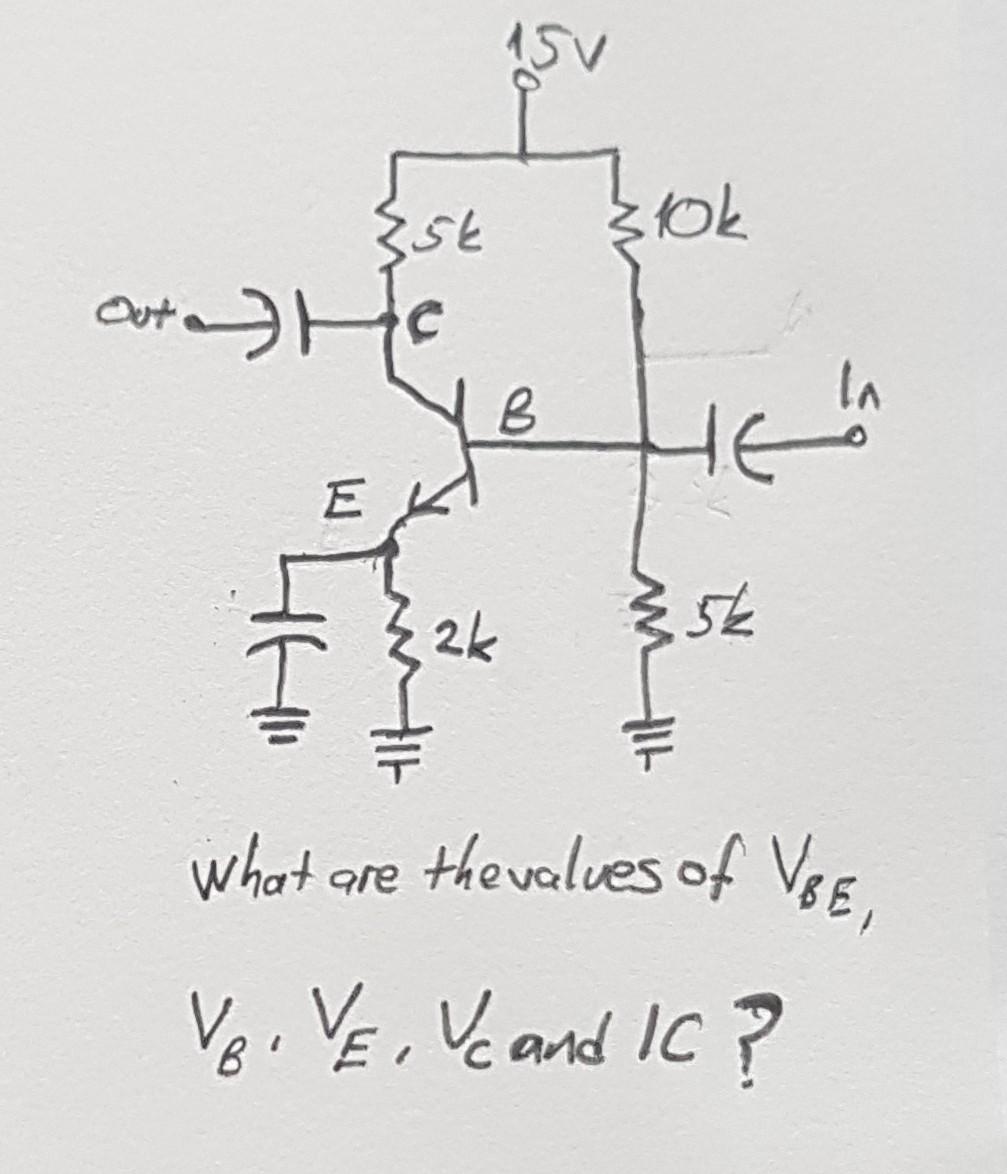 15V
5k
10k
Out
C
In
B
E
2k
5k
What are the values of VBE,
VB, VE, VC and IC ?